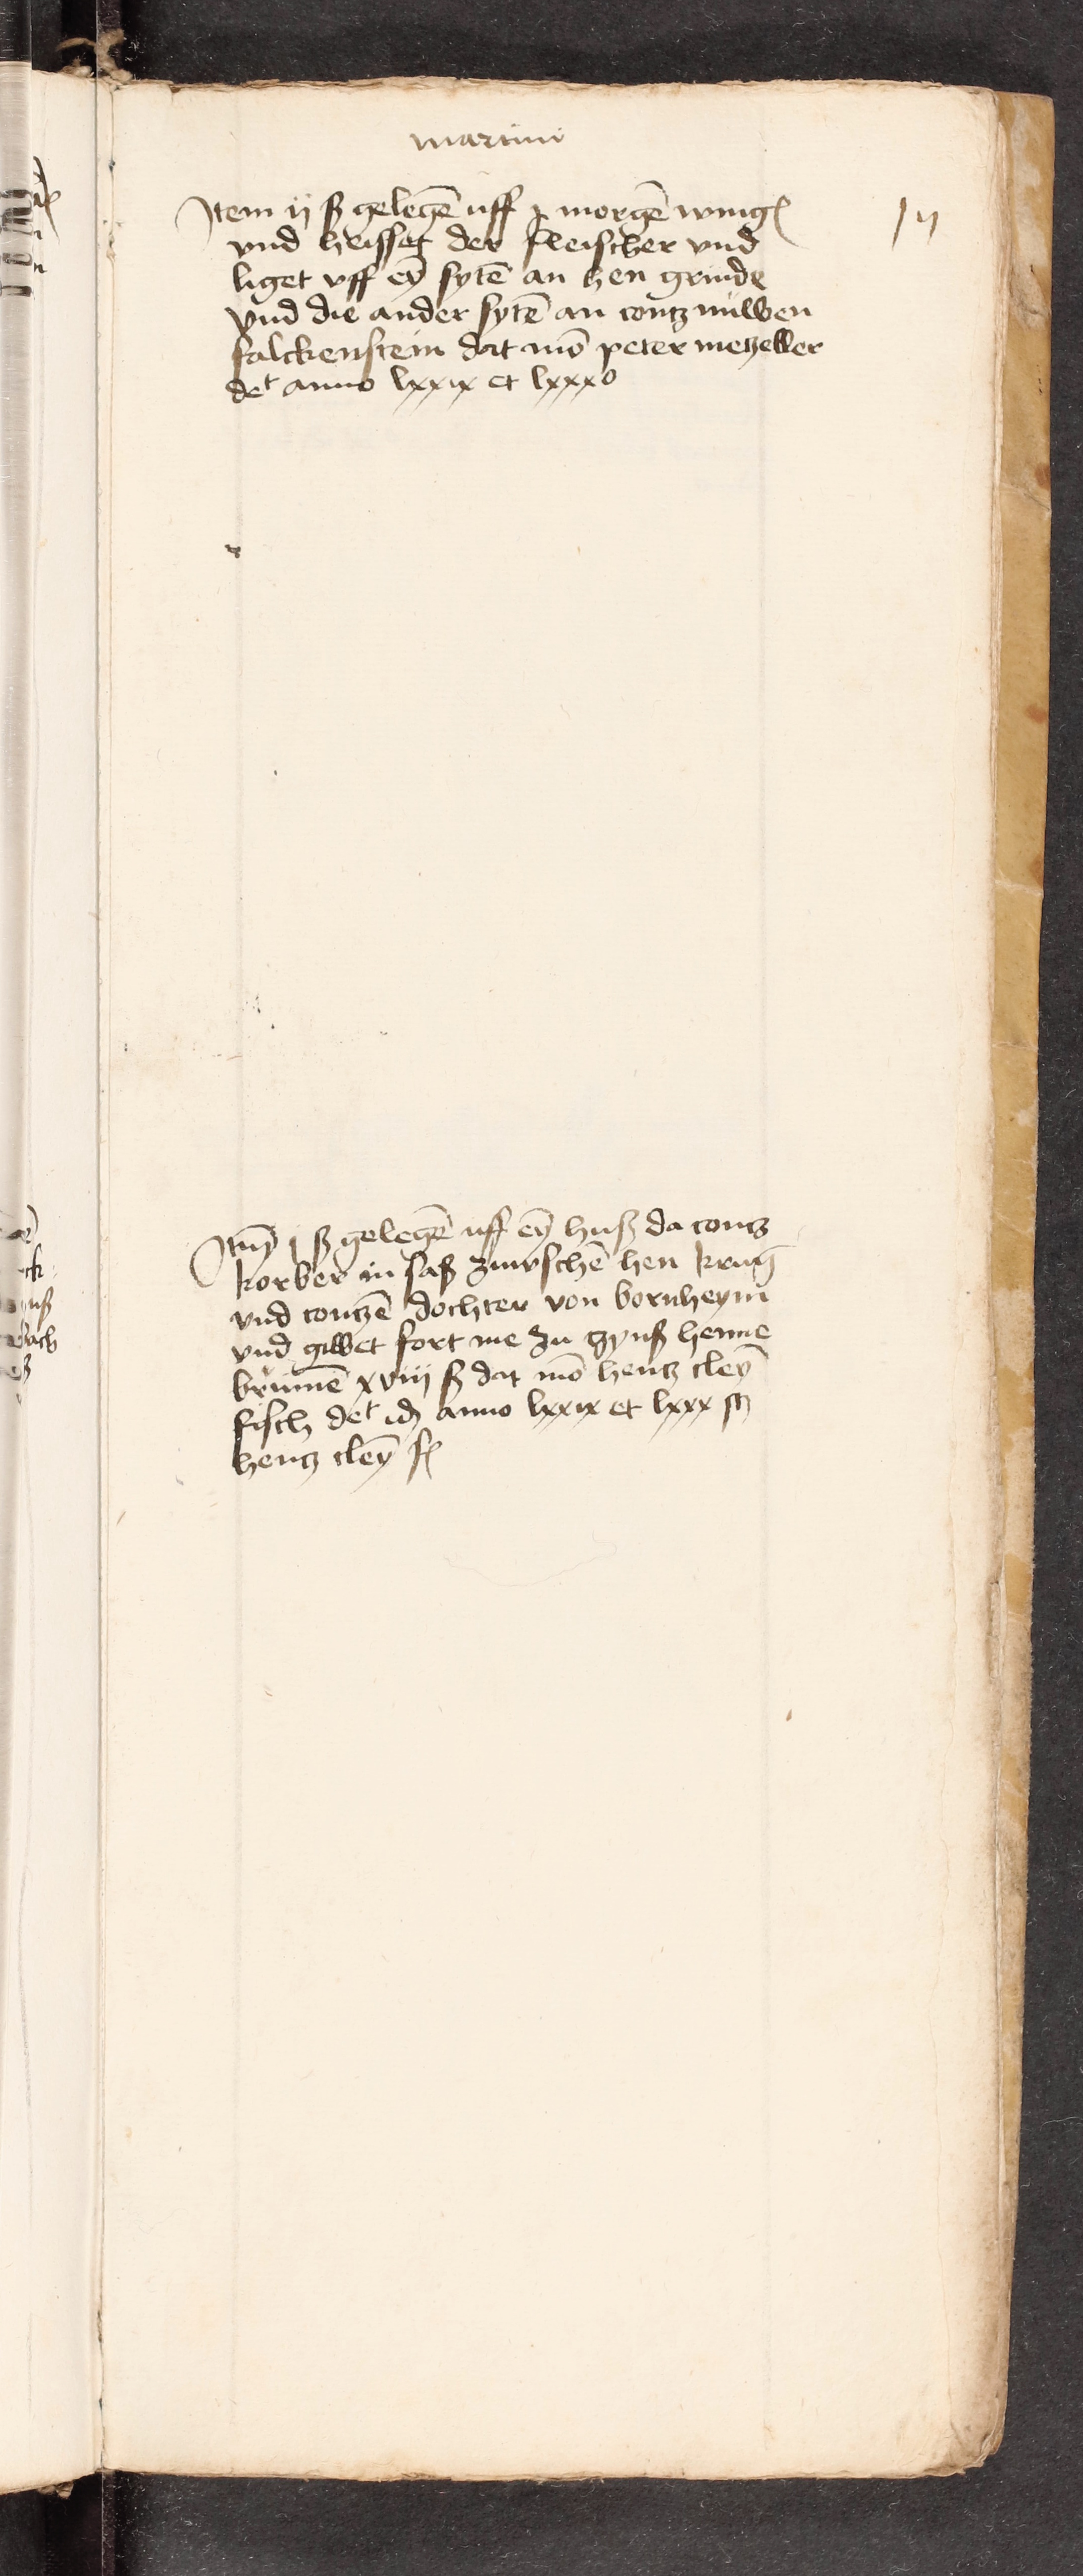 martini
Item ij ß gelegē uff j morgē wing
und heisset der fleischer vnd
liget vff eȳ sytē an hen grinde
vnd die ander sytē an contz nuwen
falckenstein dat mō peter metzeller
det anno lxxix et lxxxo
Itm̄ j ß gelegē uff eȳ huß da contz
korber in saß zwuschē hen krug
vnd contzē dochter von bornheym
vnd gibbet fort me zu zynß henne
brūmē xviij ß dat mō hentz cleȳ
fisch det id anno lxxix et lxxx
hentz cleȳ f